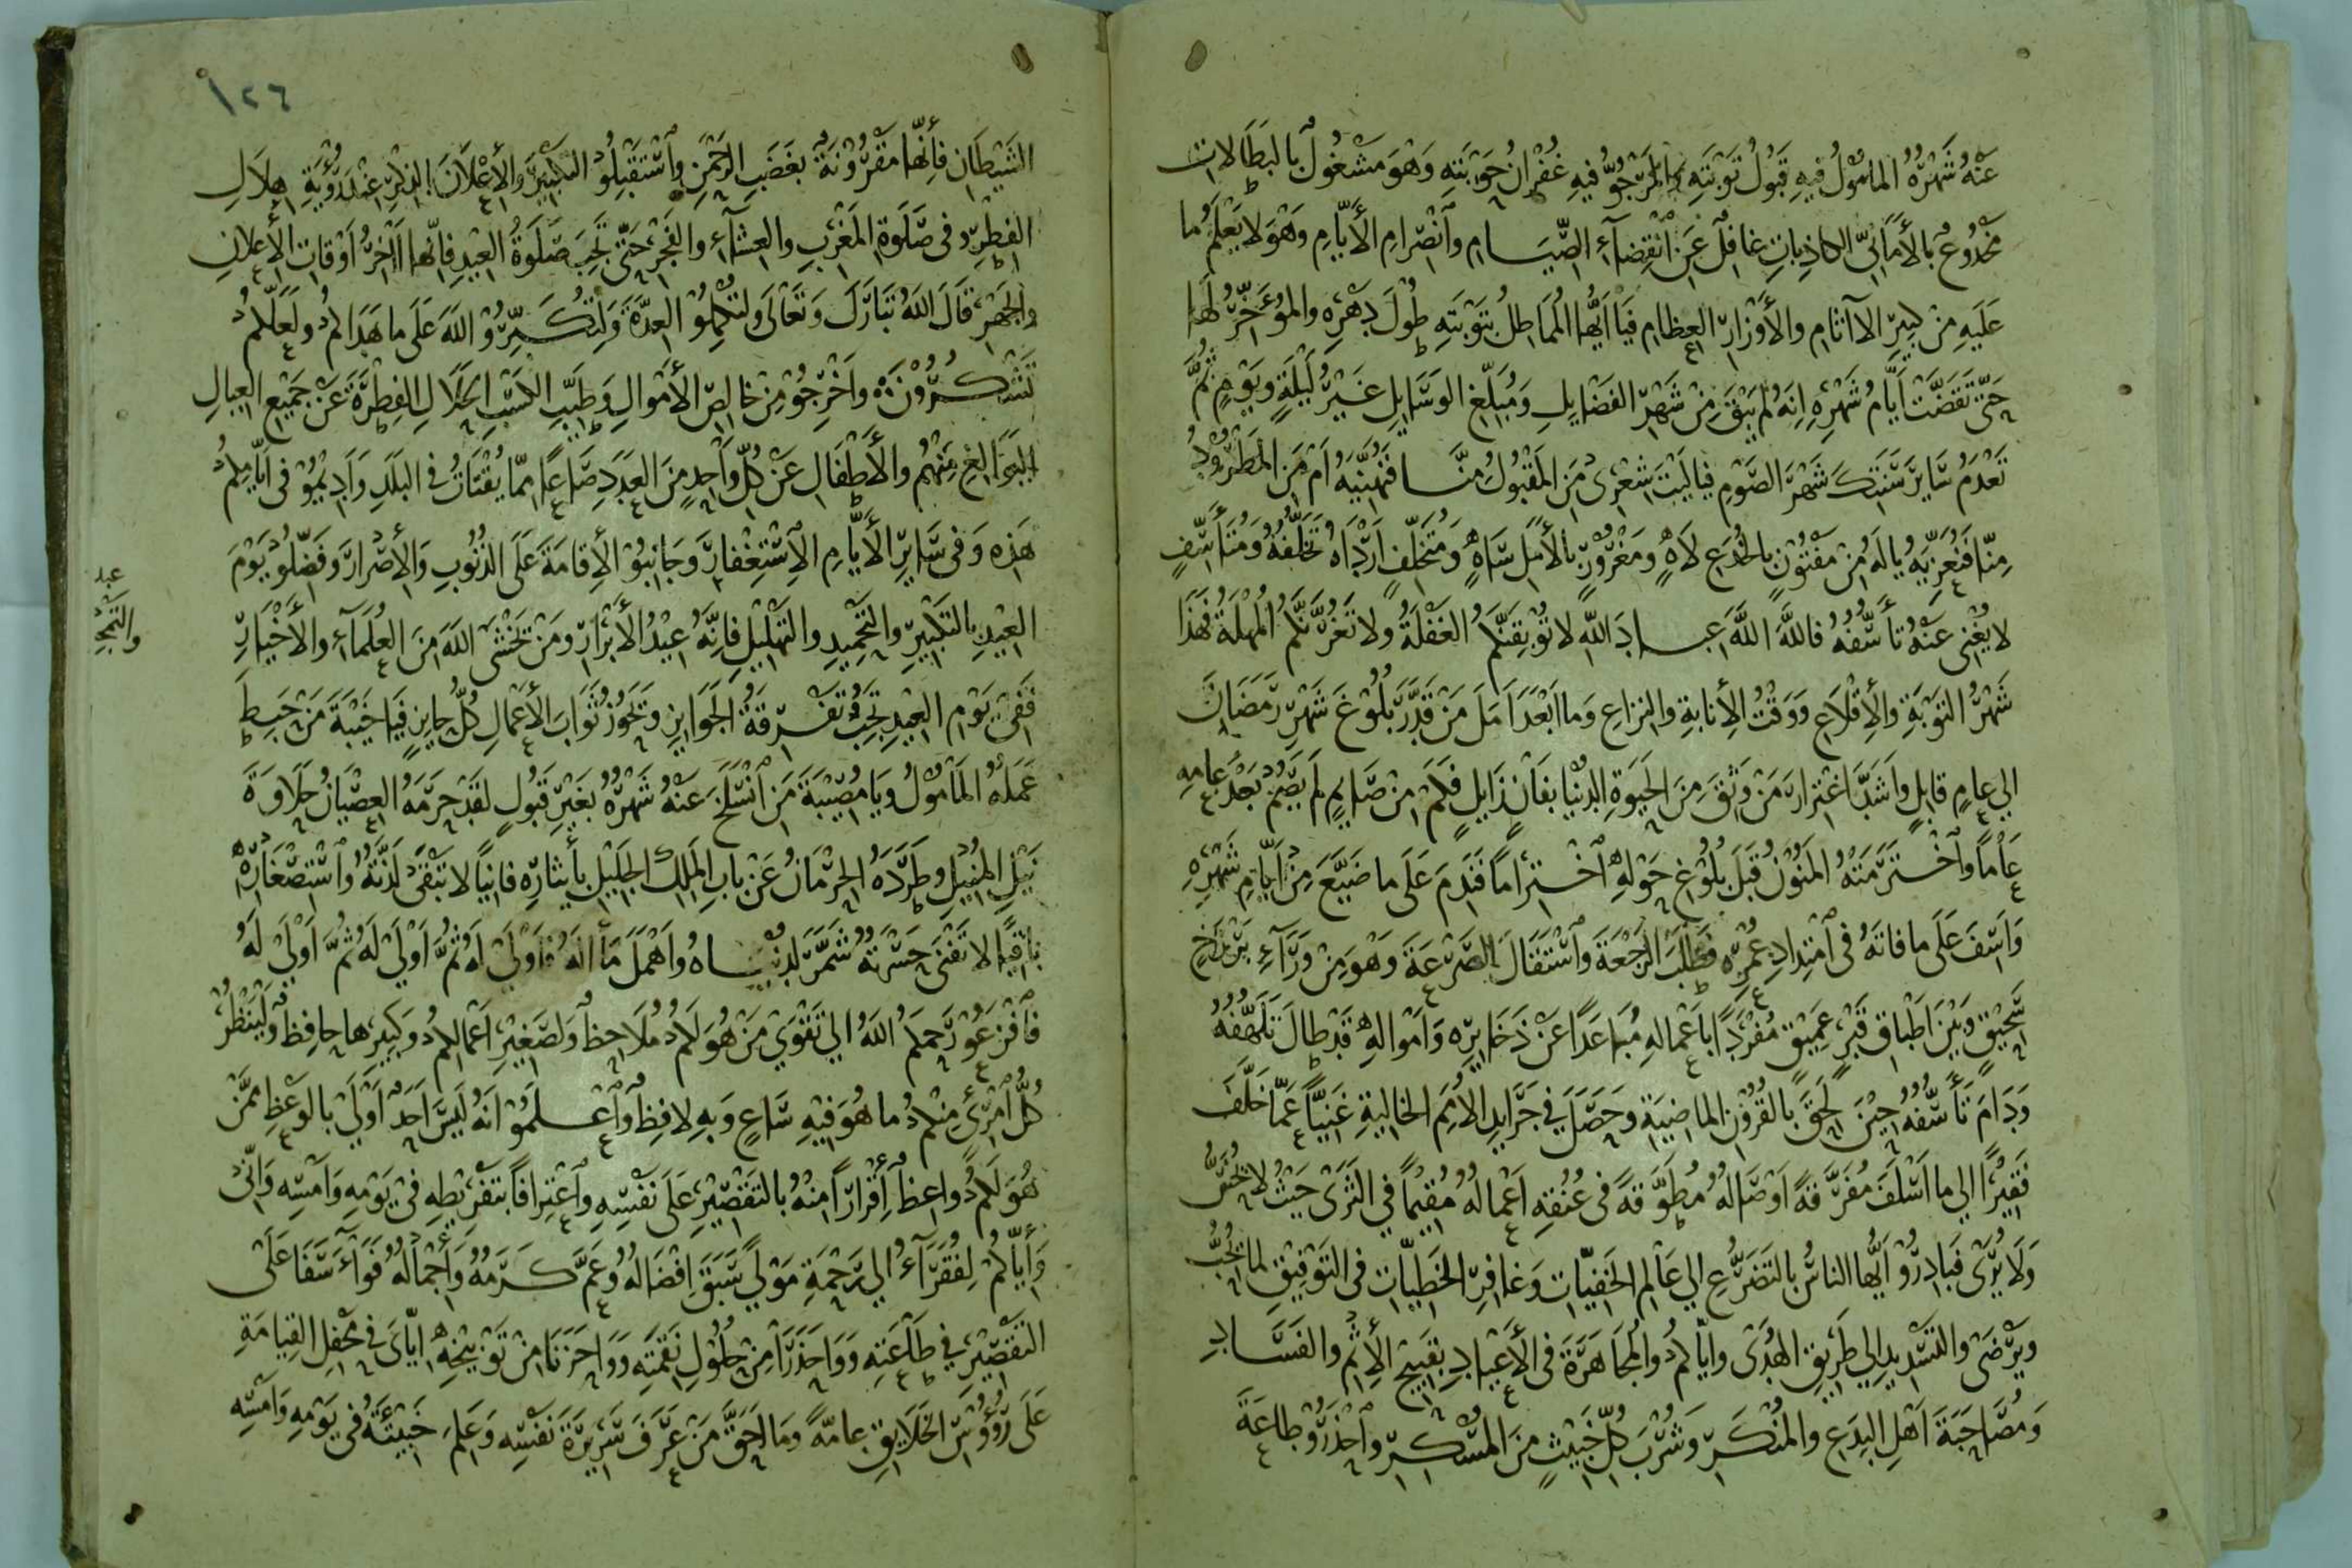 عَنْهُ شَهْرُهُ المأمُولُ فيهِ قَبُولُ تَوْبَتِهِ المَرْجُوُّ فيهِ غُفْرانُ حَوْبَتِهِ وَهْوَ مَشْغُولٌ بالبَطَالاتِ
مَخْدُوعٌ بالأَمَانِيِّ الكاذِباتِ غافِلٌ عَنِ ٱنْقِضآءِ الصِّيَامِ وٱنْصْرَامِ الأَيّامِ وَهْوَ لا يَعْلَمُ ما
عَلَيهِ مِنْ كَبِيرِ الآثامِ والأَوْزارِ العِظامِ فَيَا أَيُّها المُمَاطِلُ بتَوْبَتِهِ طُولَ دَهْرِهِ والمُؤَخِّرُ لَها
حَتّى تَقَضَّتْ أَيّامُ شَهْرِهِ إنَهُ لم يَبْقَ مِنْ شَهْرِ الفَضَايِلِ وَمُبَلِّغِ الوَسَايِلِ غَيْرُ لَيْلَةٍ ويَوْمٍ ثُمَّ
تَعْدَمُ سَايِرَ سَنَتِكَ شَهْرَ الصَّوْمِ فيا لَيْتَ شِعْرِى مَنِ المَقْبُولُ مِنَّا فَنُهَنِّيَهُ أمْ مَنِ المَطْرُودُ
مِنّا فَنُعَزِّيَهُ يا لَهُ مِنْ مَفْتُونٍ بالخُدَعِ لاَهٍ ومَغْرُورٍ بالأَمَلِ سَاهٍ وَمُتَخَلِّفٍ أَرْدَاهُ تَخَلُّفُهُ وَمُتَأَسِّفٍ
لا يُغْنِى عَنْهُ تأَسُّفُهُ فاللهَ اللهَ عِبادَ اللهِ لا تُوبِقَنَّكُمُ الغَفْلَةُ ولا تَغُرَّنَّكُمُ المُهْلَةُ فَهَذَا
شَهْرُ التَوْبَةِ والإِقْلاَعِ وَوَقْتُ الأِنابةِ والنِزاعِ وَما أَبْعَدَ أَمَلَ مَنْ قَدَّرَ بُلُوغَ شَهْرِ رَمَضَانَ
إلى عامٍ قابِلٍ وأَشَدَّ ٱغْتِرارَ مَنْ وَثِقَ مِنَ الحَيوةِ الدُنْيا بفَانٍ زَايِلٍ فَكَمْ مِنْ صَايِمٍ لَمْ يَصُمْ بَعْدَ عامِهِ
عَاماً وٱخْتَرَمَتْهُ المَنُونُ قَبْلَ بُلُوغِ حَوْلِهِ ٱخْتِراماً فَنَدِمَ عَلَى ما ضَيَّعَ مِنْ أَيّامِ شَهْرِهِ
وَأسِفَ عَلَى ما فاتَهُ فى ٱمْتِدادِ عُمْرِهِ فَطَلَبَ الرَجْعَةَ وٱسْتَقَالَ الصَرْعَةَ وَهْوَ مِنْ وَرَآءِ بَرْزَخٍ
سَحِيْقٍ وبَيْنَ أَطْباقِ قَبْرٍ عَمِيْقٍ مُفْرَداً بأَعْمالِهِ مُبَاعَداً عَنْ ذَخَايِرِهِ وَأَمْوالِهِ قَدْ طالَ تَلَهُّفُهُ
وَدَامَ تَأَسُّفُهُ حِيْنَ لَحِقَ بالقُرُونِ الماضِيَةِ وحَصَلَ في جَرَايِدِ الأُمَمِ الخاليةِ غَنِيّاً عَمّا خَلَّفَ
فَقِيْراً إلى ما أَسْلَفَ مُفَرَّقةً أوْصَالُهُ مُطَوَّقةً فى عُنُقِهِ أعْمالُهُ مُقِيْماً في الثَرَى حَيْثُ لا يُحَسُّ
وَلاَ يُرَى فَبَادِرُوْ أَيُّها الناسُ بالتَضَرُّعِ إلى عَالِمِ الخَفِيّاتِ وَغافِرِ الخَطِيّاتِ فى التَوْفِيْقِ لما يُحِبُّ
ويَرْضَى والتَسْدِيدِ إلى طَرِيقِ الهُدَى وإيّاكمُ والمُجَاهَرَةَ فى الأَعْيَادِ بقَبِيْحِ الأِثْمِ والفَسَادِ
وَمُصَاحَبَةَ أَهْلِ البِدَعِ والمُنْكَرِ وَشُرْبَ كُلِّ خَبِيْثٍ مِنَ المُسْكِرِ وٱحْذَرُوْ طاعَةَ
١٢٦
الشَيْطَانِ فأنّها مَقْرُوْنَةٌ بغَضَبِ الرَحْمَنِ وٱسْتَقْبِلُوْ التَكْبِيْرَ والأِعْلاَنَ الذِكْرِ عِنْدَ رُؤْيَةِ هِلاَلِ
الفِطْرِ فى صَلَوةِ المَغْرِبِ والعِشَآءِ والفَجْرِ حَتّى تَجِبَ صَلَوةُ العِيْدِ فإنّها آخِرُ أَوْقاتِ الأِعلانِ
والجَهْرِ قَالَ اللهُ تَبَارَكَ وَتَعَالَى ولتُكْمِلُوْ العِدَّةَ وَلِتُكَبِّرُوْ اللهَ عَلَى ما هَدَاكمُ ولَعَلَّكمُ
تَشْكُرُوْنَ وأَخْرِجُوْ مِنْ خالِصِ الأَمْوالِ وَطَيِّبِ الكَسْبِ الحَلاَلِ الفِطْرَةَ عَنْ جَمِيْعِ العِيالِ
البَوَالِغِ مِنْهُمْ والأَطْفالِ عَنْ كُلِّ وَاحِدٍ مِنَ العَدَدِ صَاعاً ممّا يُقْتَاتُ فى البَلَدِ وَأَدِيْمُوْ فى أيّامِكمُ
هَذِهِ وَفى سَايِرِ الأَيّامِ الاِسْتِغْفارَ وَجَانِبُوْ الأِقامَةَ عَلَى الذُنُوبِ وَالأِصْرارَ وفَضِّلُوْ يَوْمَ
العِيْدِ بالتَكْبِيرِ والتَحْمِيدِ والتَهْلِيْلِ فإنّهُ عِيْدُ الأَبْرَارِ ومَنْ يَخْشَى اللهَ مِنَ العُلَمَآءِ والأَخْيَارِ
فَفى يَوْمِ العِيْدِ تَجِبُ تَفْرِقَةُ الجَوَايِزِ وَيَحُوزُ ثَوَابَ الأَعْمَالِ كُلُّ حايِزٍ فَيَا خَيْبَةَ مَنْ حَبِطَ
عَمَلُهُ المَأْمُولُ ويَا مُصِيْبَةَ مَنِ ٱنْسَلَخَ عَنْهُ شَهْرُهُ بغَيْرِ قَبُولٍ لقَدْ حَرَمَهُ العِصْيَانُ حَلاَوةَ
نَيْلِ المُنِيْلِ وطَرَدَهُ الحِرْمَانُ عَنْ بابِ المَلِكِ الجَلِيْلِ بأيْثارِهِ فانِياً لا تَبْقَى لَذَّتُهُ وٱسْتِصْغارِهِ
باقِياً لا تَفْنَى حَسْرَتُهُ شَمَّرَ لدُنْيَاهُ وأَهْمَلَ مَألَهُ فأَوْلَى لَهُ ثُمَّ أَوْلَى لَهُ ثُمَّ أَوْلَى لَهُ
فٱفْزَعُوْ رَحِمَكمُ اللهُ إلى تَقْوَى مَنْ هُوَ لَكمُ مُلاَحِظٌ ولصَغِيْرِ أعْمالِكمُ وَكَبِيرِها حافِظٌ ولْيَنْظُرْ
كُلُّ ٱمْرِئٍ مِنْكمُ ما هُوَ فِيْهِ سَاعٍ وَبهِ لافِظٌ وٱعْلَمُوْ أنَهُ لَيْسَ أَحَدٌ أَوْلَى بالوَعْظِ ممَّنْ
هُوَ لَكمُ واعِظٌ إقْرَاراً مِنْهُ بالتَقْصِيْرِ عَلَى نَفْسِهِ وٱعْتِرافاً بتَفْرِيْطِهِ فى يَوْمِهِ وَأَمْسِهِ وَإنّى
وَأيّاكُمْ لفُقَرَآءُ إلى رَحْمَةِ مَوْلىً سَبَقَ إفْضَالُهُ وعَمَّ كَرَمُهُ وَأجْمالُهُ فَوَا أَسَفَا عَلَى
التَقْصِيْرِ في طَاعَتِهِ وَوَا حَذَرَا مِنْ حُلُوْلِ نَقِمَتِهِ ووَا حَزَنَا مِنْ تَوْبِيْخِهِ إيّاىَ في مَحْفِلِ القِيامَةِ
عَلَى رُؤُوْسِ الخَلايِقِ عامّةً وَما أَحَقَّ مَنْ عَرَفَ سَرِيْرَةَ نَفْسِهِ وَعَلِمَ خَبِيْئَهُ فى يَوْمِهِ وَأَمْسِهِ